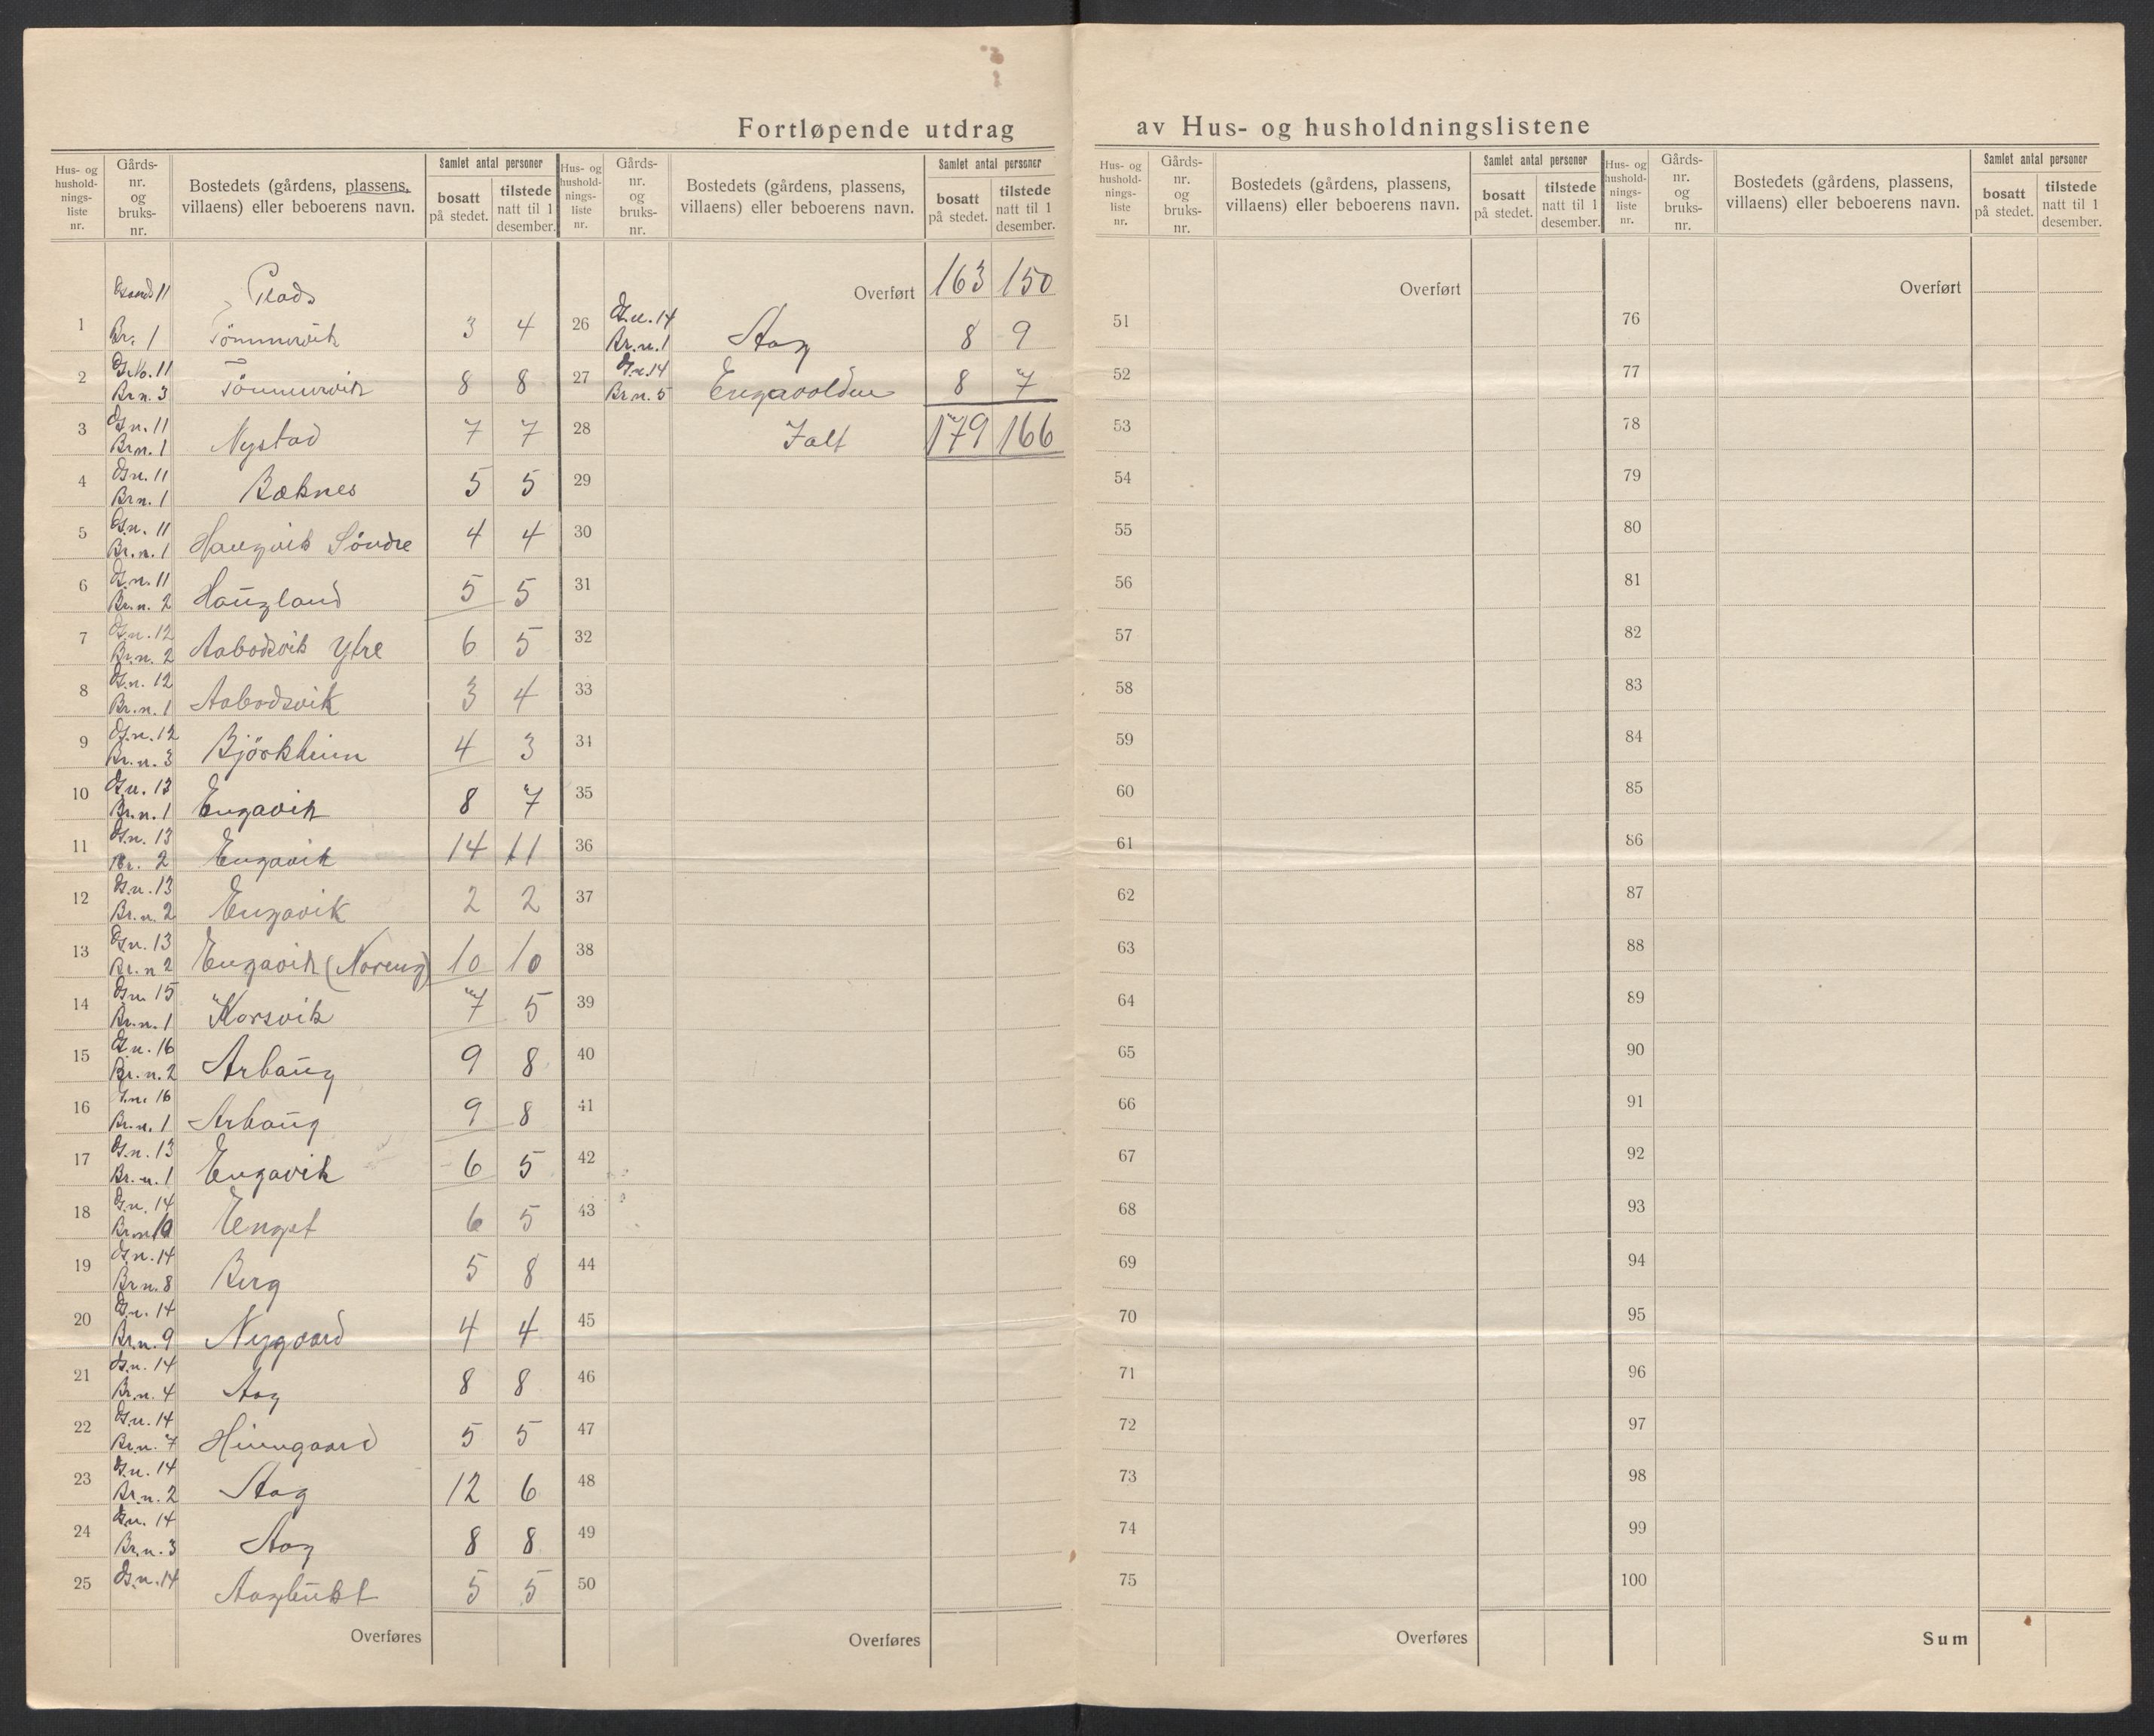 Fortløpende utdrag av Hus- og husholdningslistene
Hus- og hushold-nings-liste nr. | Gårds-nr. og bruks-nr. | Bostedets (gårdens, plassens, villaens) eller beboerens navn. | Samlet antal personer: bosatt på stedet. | tilstede natt til 1 desember.
Gaard 11 Plads
1 | Br. 1 | Tömmervik | 3 | 4
2 | G.No. 11 Br n. 3 | Tömmervik | 8 | 8
3 | G.n. 11 Br n. 1 | Nystad | 7 | 7
4 | G.n. 11 Br n. 1 | Bæknes | 5 | 5
5 | G.n. 11 Br. n. 1 | Haugvik Söndre | 4 | 4
6 | G.n. 11 Br. n. 2 | Haugland | 5 | 5
7 | G.n. 12 Br. n. 2 | Aabodsvik Ytre | 6 | 5
8 | G.n. 12 Br. n. 1 | Aabodsvik | 3 | 4
9 | G.n. 12 Br. n. 3 | Björkheim | 4 | 3
10 | G.n. 13 Br. n. 1 | Engavik | 8 | 7
11 | G.n. 13 Br. 2 | Engavik | 14 | 11
12 | G.n. 13 Br. n. 2 | Engavik | 2 | 2
13 | G.n. 13 Br. n 2 | Engavik (Noreng) | 10 | 10
14 | G.n. 15 Br. n. 1 | Korsvik | 7 | 5
15 | G.n. 16 Br. n. 2 | Arhaug | 9 | 8
16 | G.n. 16 Br. n. 1 | Arhaug | 9 | 8
17 | G.n. 13 Br. n. 1 | Engavik | 6 | 5
18 | G.n. 14 Br. n. 10 | Enget | 6 | 5
19 | G.n. 14 Br n. 8 | Berg | 5 | 8
20 | G.n. 14 Br. n. 9 | Nygaard | 4 | 4
21 | G.n. 14 Br. n. 4 | Aag | 8 | 8
22 | G.n. 14 Br. n. 7 | Heimgaard | 5 | 5
23 | G.n. 14 Br. n. 2 | Aag | 12 | 6
24 | G.n. 14 Br. n. 3 | Aag | 8 | 8
25 | G.n. 14 | Aagbukt | 5 | 5
Overføres
Hus- og hushold-nings-liste nr. | Gårds-nr. og bruks-nr. | Bostedets (gårdens, plassens, villaens) eller beboerens navn. | Samlet antal personer: bosatt på stedet. | tilstede natt til 1 desember.
Overført | 163 | 150
26 | G.n. 14 Br. n. 1 | Aag | 8 | 9
27 | G.n. 14 Br n. 5 | Engavolden | 8 | 7
28 | Ialt | 179 | 166
29
30
31
32
33
34
35
36
37
38
39
40
41
42
43
44
45
46
47
48
49
50
Overføres
Hus- og hushold-nings-liste nr. | Gårds-nr. og bruks-nr. | Bostedets (gårdens, plassens, villaens) eller beboerens navn. | Samlet antal personer: bosatt på stedet. | tilstede natt til 1 desember.
Overført
51
52
53
54
55
56
57
58
59
60
61
62
63
64
65
66
67
68
69
70
71
72
73
74
75
Overføres
Hus- og hushold-nings-liste nr. | Gårds-nr. og bruks-nr. | Bostedets (gårdens, plassens, villaens) eller beboerens navn. | Samlet antal personer: bosatt på stedet. | tilstede natt til 1 desember.
Overført
76
77
78
79
80
81
82
83
84
85
86
87
88
89
90
91
92
93
94
95
96
97
98
99
100
Sum